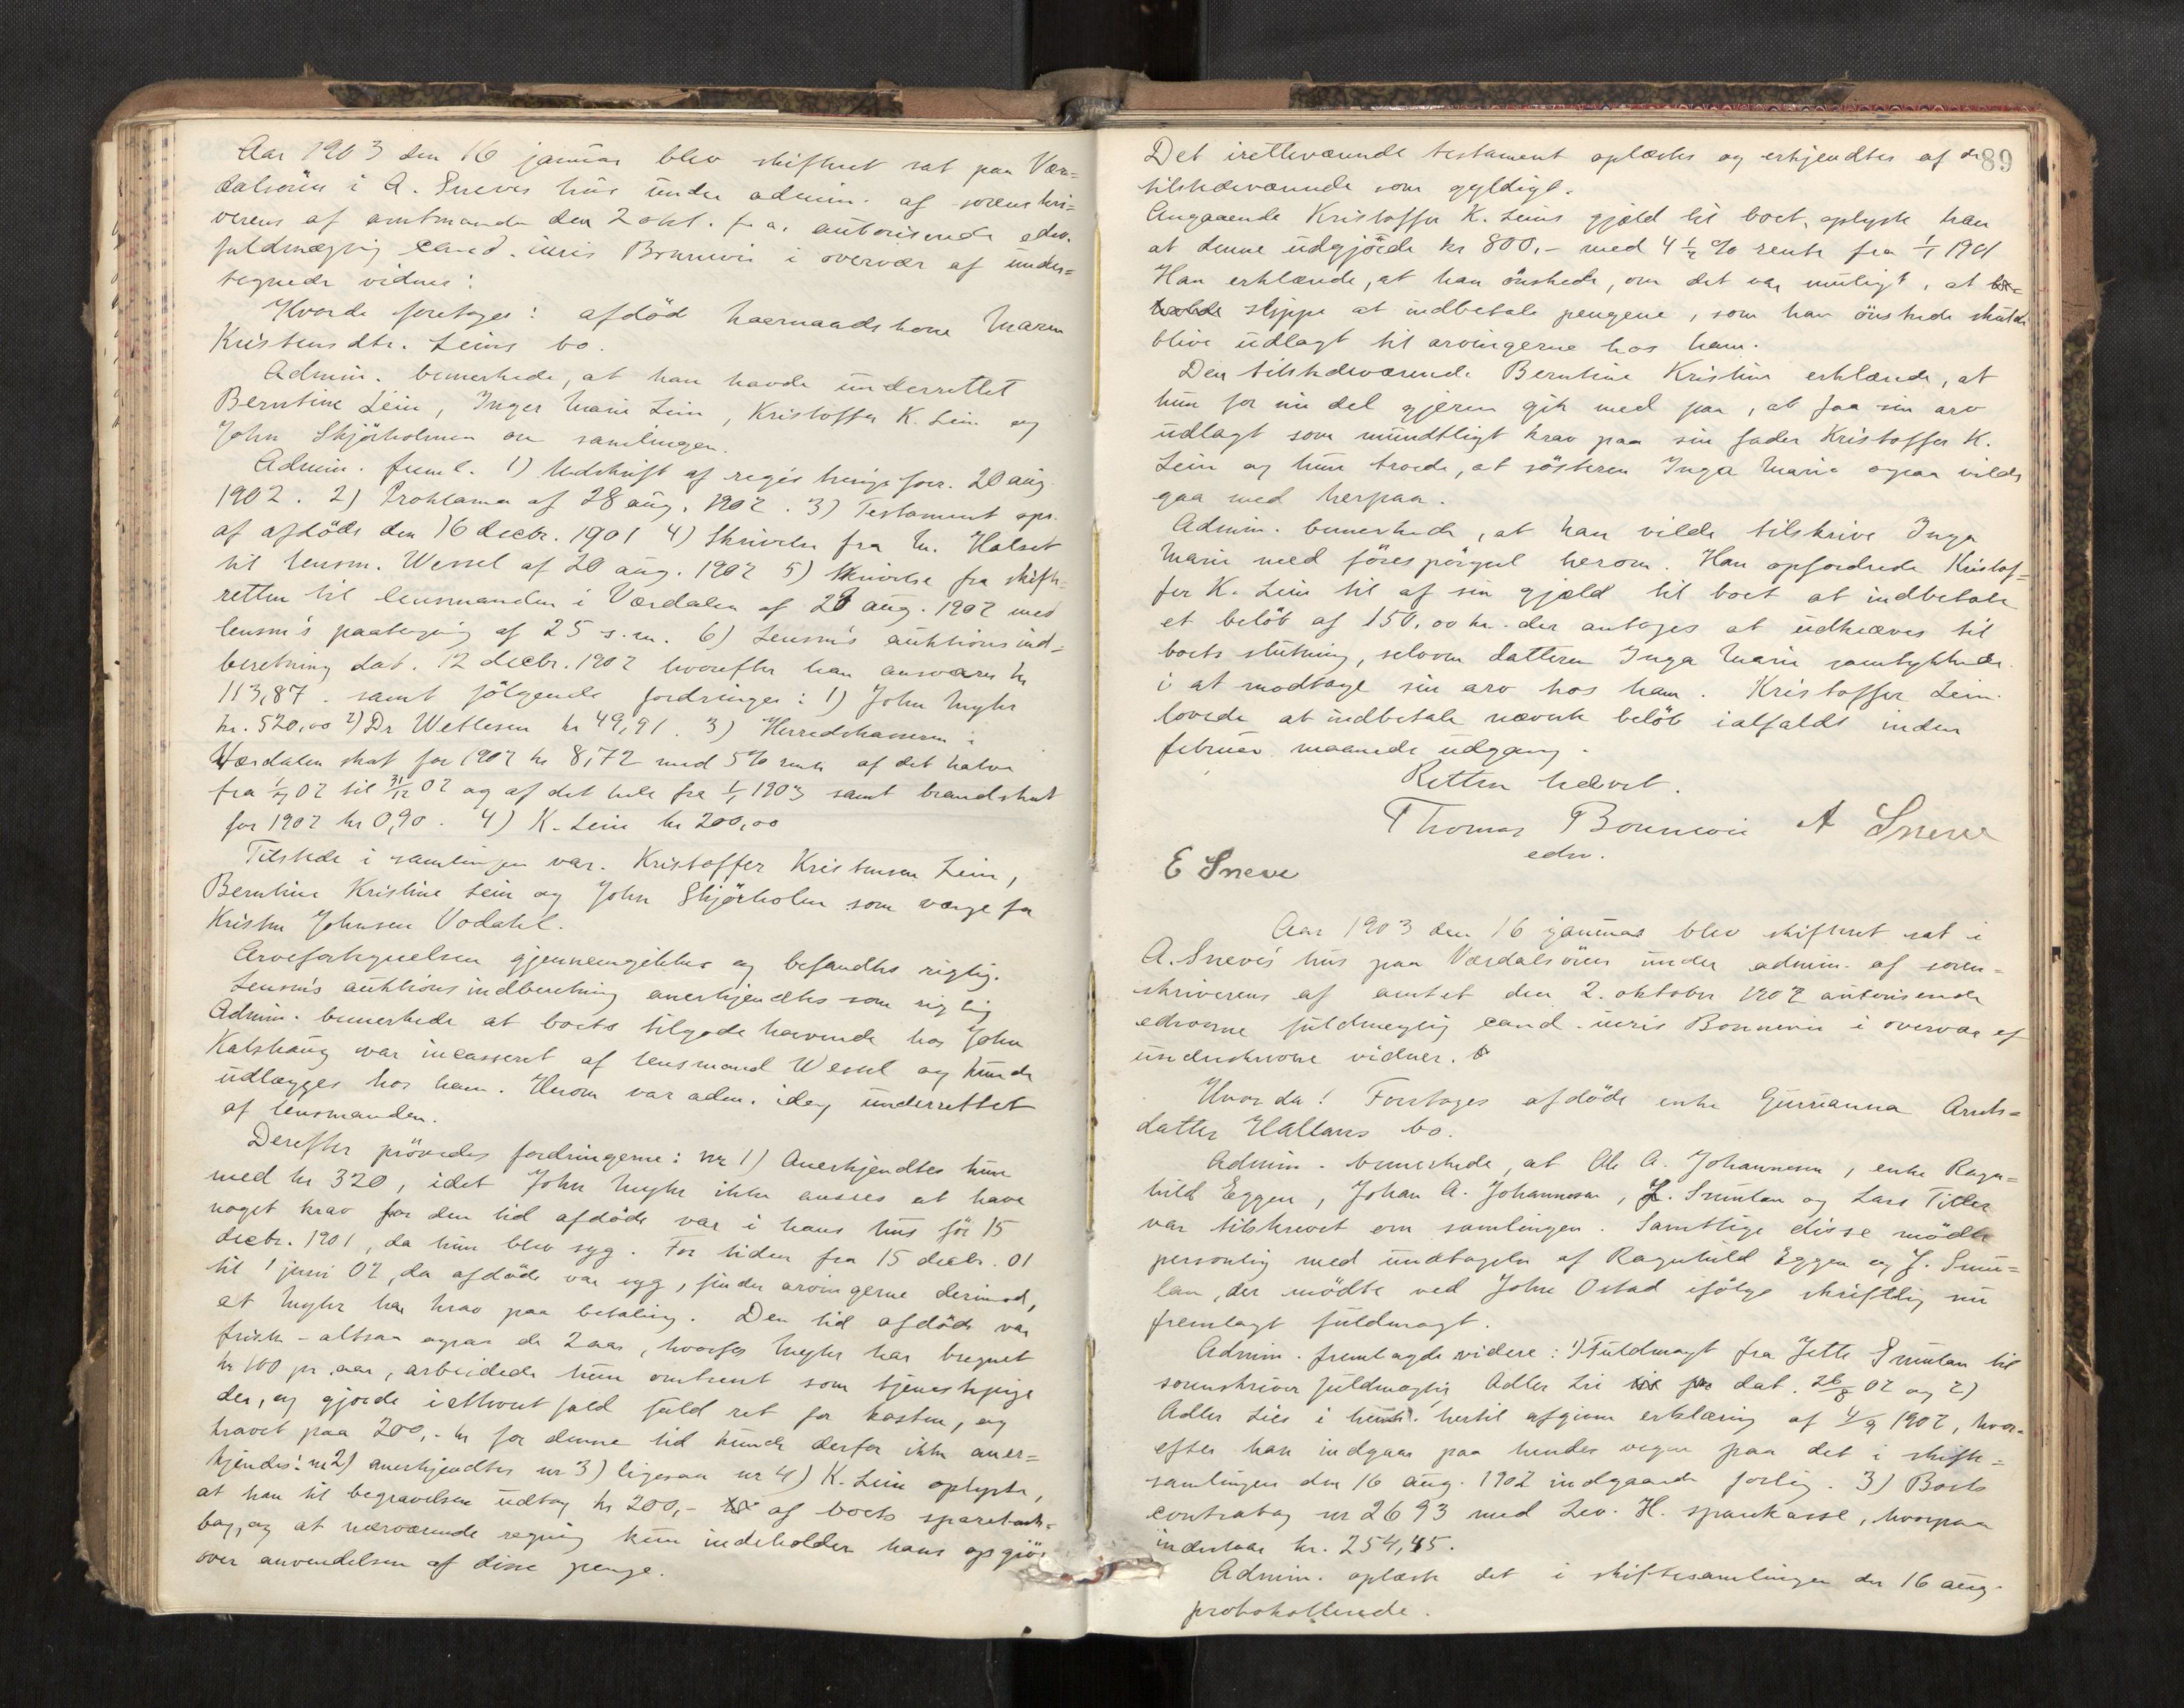 Aar 1903 den 16 januar blev skifteret sat paa Vær=
dalsören i A. Sneves hus under admin. af sorenskri=
verens af amtmanden den 2 okt. f. a. autoriserede edsv.
fuldmægtig cand. iuris Bonnevie i overvær af under=
tegnede vidner:
Hvorda foretoges: afdöd kaarmandskone Maren
Kristensdtr. Leins bo.
Admin. bemerkede, at han havde underrettet
Berntine Lein, Inger Marie Lein, Kristoffer K. Lein og
John Skjörholmen om samlingen.
Admin. freml. 1) Udskrift af registrerings forr. 20 aug.
1902. 2) Proklama af 28 aug. 1902. 3) Testament opr.
af afdöde den 16 decbr. 1901 4) Skrivelse fra M. Halset
til lensm. Wessel af 20 aug. 1902 5) Skrivelse fra skifte-
retten til lensmanden i Værdalen af 21 aug. 1902 med
lensm's paategning af 25 s. m. 6) Lensm's auktionsind=
beretning dat. 12 decbr. 1902 hvorefter han ansvarer kr
113,87. samt fölgende fordringer: 1) John Myhr
kr. 520,00 2) Dr Wettesen kr 49,91. 3) Herredskassen i
Værdalen skat for 1902 kr 8,72 med 5% rente af det halve
fra 1/7 02 til 31/12 02 og af det hele fra 1/1 1903 samt brandskat
for 1902 kr 0,90. 4) K. Lein kr 200,00
Tilstede i samlingen var. Kristoffer Kristensen Lein,
Berntine Kristine Lein og John Skjörholm som verge for
Kristen Johnsen Vodahl.
Arvefortegnelsen gjennemgikkes og befandtes rigtig.
Lensm's auktionsindberetning anerkjendtes som rigtig
Admin. bemerkede at boets tilgodehavende hos John
Kalshaug var incasseret af lensmand Wessel og kunde
udlægges hos ham. Herom var adm. idag underrettet
af lensmanden.
Derefter prövedes fordringerne: nr 1) Anerkjendtes kun
med kr 320, idet John Myhr ikke ansees at have
noget krav for den tid afdöde var i hans hus för 15
decbr. 1901, da hun blev syg. For tiden fra 15 decbr. 01
til 1 juni 02, da afdöde var syg, finder arvingerne derimod,
at Myhr har krav paa betaling. Den tid afdöde var
frisk - altsaa ogsaa de 2 aar, hvorfor Myhr har beregnet
kr 100 pr. aar, arbeidede hun omtrent som tjenestepige
der, og gjorde i ethvert fald fuld ret for kosten, og
kravet paa 200,- kr for denne tid kunde derfor ikke aner=
kjendes. nr 2) anerkjendtes nr 3) ligesaa nr 4) K. Lein oplyste,
at han til begravelsen udtog kr 200,- af boets sparebank=
bog, og at nærværende regning kun indeholder hans opgjör
over anvendelsen af disse penge.
89
Det iretteværende testament oplæstes og erkjendtes af de
tilstedeværende som gyldigt.
Angaaende Kristoffer K. Leins gjæld til boet, oplyste han
at denne udgjörde kr 800,- med 4 1/2 % rente fra 1/1 1901
Han erklærede, at han önskede, om det var muligt, at
slippe at indbetale pengene, som han önskede skulde
blive udlagt til arvingerne hos ham.
Den tilstedeværende Berntine Kristine erklærede, at
hun for sin del gjerne gik med paa, at faa sin arv
udlagt som mundtligt krav paa sin fader Kristoffer K.
Lein og hun troede, at sösteren Inga Marie ogsaa vilde
gaa med herpaa.
Admin. bemerkede, at han vilde tilskrive Inga
Marie med förespörgsel herom. Han opfordrede Kristof=
fer K. Lein til af sin gjæld til boet at indbetale
et belöb af 150,00 kr. der antages at udkræves til
boets slutning, selvom datteren Inga Marie samtykkede
i at modtage sin arv hos ham. Kristoffer Lein
lovede at indbetale nævnte belöb ialfaldt inden
februar maaneds udgang.
Retten hævet.
Thomas Bonnevie A Sneve
edsv.
E Sneve
Aar 1903 den 16 januar blev skifteret sat i
A. Sneve's hus paa Værdalsören under admin. af soren=
skriverens af amtet den 2. oktober 1902 autoriserede
edsvorne fuldmægtig cand. iuris Bonnevie i overvær af
underskrevne vidner.
Hvorda! Foretoges afdöde enke Gurianna Arnts=
datter Hallans bo.
Admin. bemerkede, at Ole A. Johannesen, enke Ragn=
hild Eggen, Johan A. Johannesen, J. Smulan og Lars Titler
var tilskrevet om samlingen. Samtlige disse mödte
personlig med undtagelse af Ragnhild Eggen og J. Smu=
lan, der mödte ved John Ostad ifölge skriftlig nu
fremlagt fuldmagt.
Admin. fremlagde videre: 1) Fuldmagt fra Jette Smulan til
sorenskriver fuldmægtig Adler Lie dat. 26/8 02 og 2)
Adler Lies i hertil afgivne erklæring af 4/9 1902, hvor-
efter han indgaar paa hendes vegne paa det i skifte=
samlingen den 16 aug. 1902 indgaaede forlig. 3) Boets
contrabog nr 2693 med Lev. H. sparekasse, hvorpaa
indestaar kr. 254,45.
Admin. oplæste det i skiftesamlingen den 16 aug.
protokollerede.